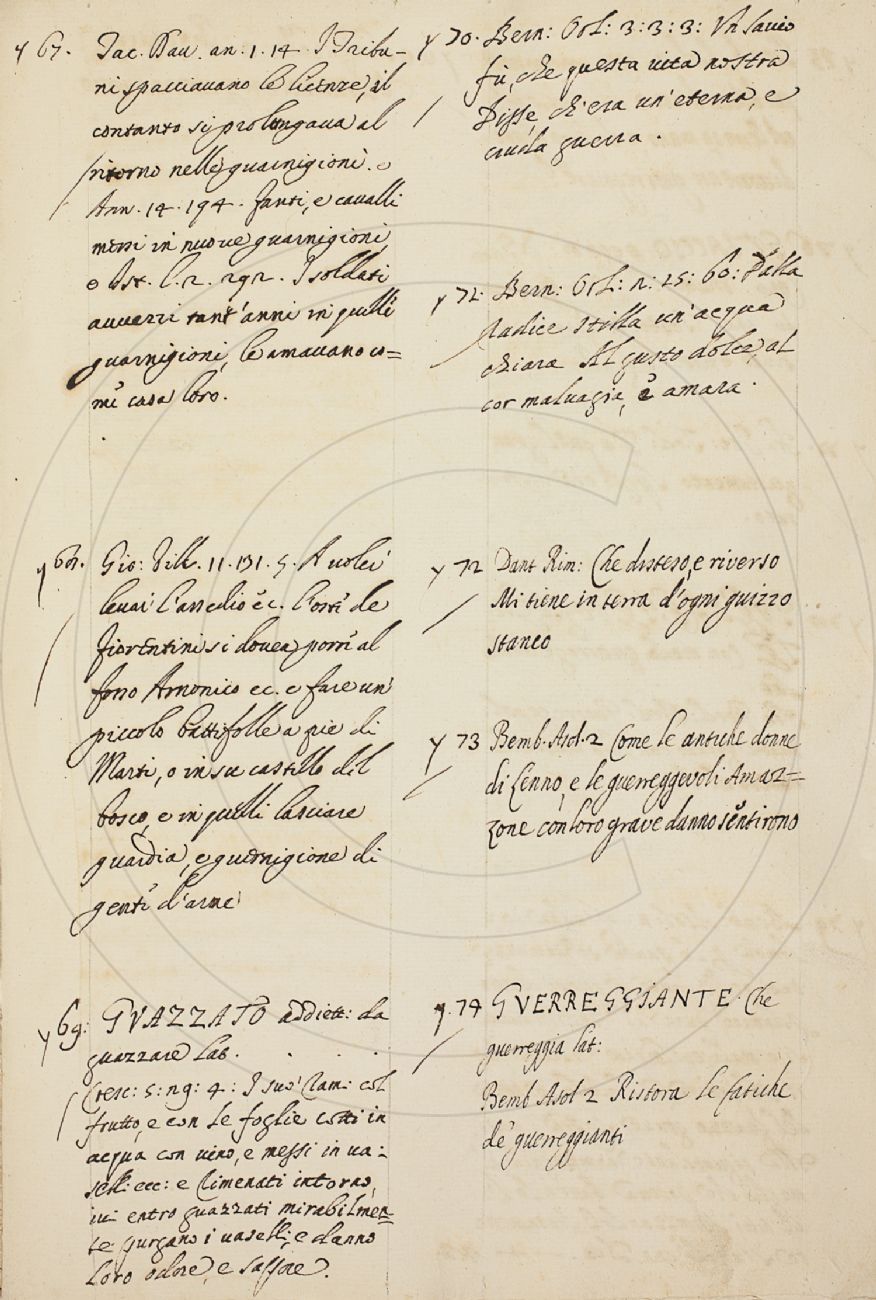 y 67. Tac. Dav. an. 1. 14. I Tribu-
ni spacciavano le licenze, il
contanto si prolongava al
ritorno nelle guarnigioni. e
Ann. 14. 194. fanti, e cavalli
messi in nuove guarnigioni,
e Ist. l. 2. 292. I soldati
avvezzi tant'anni in quelle
guarnigioni, le amavano co=
me casa loro.
y 68. Gio: Vill. 11. 131. 5. A voler
levar l'assedio &c. l'oste de
fiorentini si dovea porre al
fosso Arnonico ec. e fare un
piccolo battifolle a pie di
Marti, o in su castello del
bosco, e in quelli lasciare
guardia, e guernigione di
gente d'arme
y 69: GVAZZATO addiett: da
guazzare Lat. . . .
Cresc: 5: 29: 4: I suo' ram: col
frutto, e con le foglie cotti in
acqua con vino, e messi in va:
selli ecc: e rimenati intorno,
ivi entro guazzati mirabilmen=
te purgano i vaselli, e danno
loro odore, e sapore.
y 70. Bern: Orl: 3: 3: 3: Un savio
fù, che questa vita nostra
Disse, ch'era un'eterna, e
cruda guerra.
y 72. Bern: Orl: 2: 25: 60: Dalla
radice stilla un'acqua
chiara Al gusto dolce, al
cor malvagia, è amara.
y 72 Dant Rim: Che disteso, e riverso
Mi tiene in terra d'ogni guizzo
stanco
y 73 Bemb. Asol. 2 Come le antiche donne
di Lenno, e le guerreggevoli Amaz=
zone con loro grave danno sentirono
y. 74 GVERREGGIANTE. Che
guerreggia lat:
Bemb Asol 2 Ristora le fatiche
de' guerreggianti